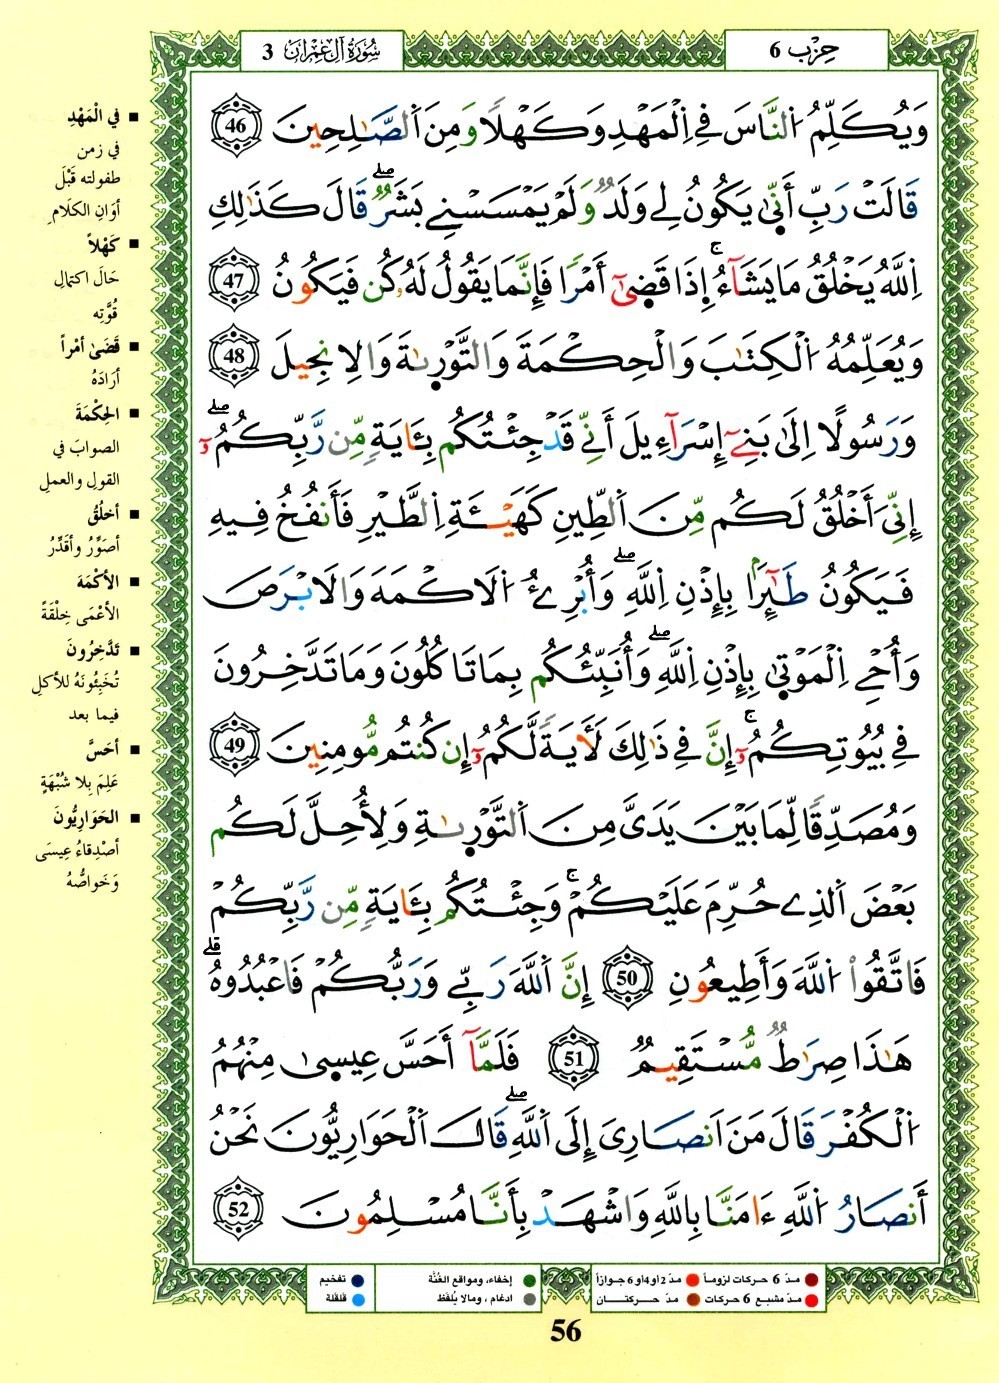 حِزْب 6
سُورَةُ آلِ عِمْرَان 3
وَيُكَلِّمُ اُ۬لنَّاسَ فِے اِ۬لْمَهْدِ وَكَهْلاٗ وَمِنَ اَ۬لصَّٰلِحِينَۖ 46
قَالَتْ رَبِّ أَنّ۪ىٰ يَكُونُ لِے وَلَدٞ وَلَمْ يَمْسَسْنِے بَشَرٞۖ قَالَ كَذَٰلِكِ
اِ۬للَّهُ يَخْلُقُ مَا يَشَآءُۚ إِذَا قَض۪ىٰٓ أَمْراٗ فَإِنَّمَا يَقُولُ لَهُۥ كُن فَيَكُونُ 47
وَيُعَلِّمُهُ اُ۬لْكِتَٰبَ وَالْحِكْمَةَ وَالتَّوْر۪ىٰةَ وَالِانجِيلَ 48
وَرَسُولاً اِلَىٰ بَنِےٓ إِسْرَآءِيلَ أَنِّے قَدْ جِئْتُكُم بِـَٔايَةٖ مِّن رَّبِّكُمُۥٓۖ
إِنِّيَ أَخْلُقُ لَكُم مِّنَ اَ۬لطِّينِ كَهَيْـَٔةِ اِ۬لطَّيْرِ فَأَنفُخُ فِيهِ
فَيَكُونُ طَٰٓئِراَۢ بِإِذْنِ اِ۬للَّهِۖ وَأُبْرِۓُ اُ۬لَاكْمَهَ وَالَابْرَصَ
وَأُحْيِ اِ۬لْمَوْت۪ىٰ بِإِذْنِ اِ۬للَّهِۖ وَأُنَبِّئُكُم بِمَا تَاكُلُونَ وَمَا تَدَّخِرُونَ
فِے بُيُوتِكُمُۥٓۚ إِنَّ فِے ذَٰلِكَ لَأٓيَةٗ لَّكُمُۥٓ إِن كُنتُم مُّومِنِينَ 49
وَمُصَدِّقاٗ لِّمَا بَيْنَ يَدَىَّ مِنَ اَ۬لتَّوْر۪ىٰةِ وَلِأُحِلَّ لَكُم
بَعْضَ اَ۬لذِے حُرِّمَ عَلَيْكُمْۚ وَجِئْتُكُم بِـَٔايَةٖ مِّن رَّبِّكُمْ
فَاتَّقُواْ اُ۬للَّهَ وَأَطِيعُونِ 50 إِنَّ اَ۬للَّهَ رَبِّے وَرَبُّكُمْ فَاعْبُدُوهُۖ
هَٰذَا صِرَٰطٞ مُّسْتَقِيمٞ 51 فَلَمَّآ أَحَسَّ عِيس۪ىٰ مِنْهُمُ
اُ۬لْكُفْرَ قَالَ مَنَ اَنصَارِيَ إِلَى اَ۬للَّهِۖ قَالَ اَ۬لْحَوَارِيُّونَ نَحْنُ
أَنصَارُ اُ۬للَّهِ ءَامَنَّا بِاللَّهِ وَاشْهَدْ بِأَنَّا مُسْلِمُونَ 52
■ في الْمَهْدِ
في زمن
طفولته قَبْلَ
أوَانِ الكلَامِ
■ كَهْلاً
حَالَ اكتمالِ
قُوَّتِه
■ قَضَىٰ أمْراً
أرَادَهُ
■ الحِكْمَةَ
الصوابَ في
القولِ والعملِ
■ أخلُقُ
أصَوِّرُ وأقَدِّرُ
■ الأكْمَهَ
الأعْمَى خِلْقَةً
■ تَدَّخِرُونَ
تُخَبِّئُونَهُ للأكلِ
فيما بعد
■ أحَسَّ
عَلِمَ بِلا شُبْهَةٍ
■ الحَوَارِيُّونَ
أصْدِقاءُ عِيسَى
وَخَواصُّهُ
مدّ 6 حركات لزوماً
مدّ 2 أو 4 أو 6 جوازاً
إخفاء، ومواقع الغُنَّة
تفخيم
مدّ مشبع 6 حركات
مدّ حركتان
ادغام ، ومالا يُلفَظ
قلقلة
56